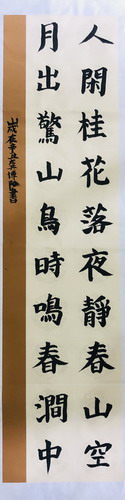 人閑桂花落夜靜春山空
月出驚山鳥時鳴春澗中